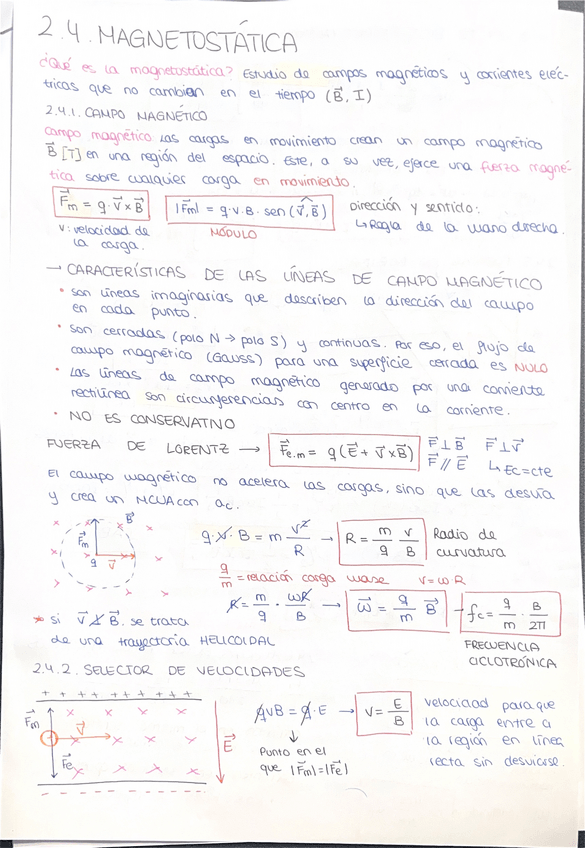 2.4. MAGNETOSTÁTICA
¿Qué es la magnetostática? Estudio de campos magnéticos y corrientes eléc-
tricas que no cambian en el tiempo (B⃗, I)
2.4.1. CAMPO MAGNÉTICO
Campo magnético Las cargas en movimiento crean un campo magnético
B⃗ [T] en una región del espacio. Este, a su vez, ejerce una fuerza magné-
tica sobre cualquier carga en movimiento.
F⃗m = q · v⃗ x B⃗
|F⃗m| = q·v·B· sen (v⃗, B⃗)
Dirección y sentido:
↳ Regla de la mano derecha.
v: velocidad de
la carga.
MÓDULO
→ CARACTERÍSTICAS DE LAS LÍNEAS DE CAMPO MAGNÉTICO
• Son líneas imaginarias que describen la dirección del campo
en cada punto.
• Son cerradas (polo N → polo S) y continuas. Por eso, el flujo de
campo magnético (Gauss) para una superficie cerrada es NULO
• Las líneas de campo magnético generado por una corriente
rectilínea son circunferencias con centro en la corriente.
• NO ES CONSERVATIVO
FUERZA DE LORENTZ → F⃗e.m = q (E⃗ + v⃗ x B⃗)
F⃗ ⊥ B⃗ F⃗ ⊥ v⃗
F⃗ // E⃗ ↳ Ec = cte
El campo magnético no acelera las cargas, sino que las desvía
y crea un MCUA con ac.
B⃗
F⃗m
q v⃗
q·v·B = m v²/R → R = m/q v/B Radio de
curvatura
q/m = relación carga masa v = ω R
R = m/q · ωR/B → ω⃗ = q/m B⃗ – fc = q/m · B/2π
FRECUENCIA
CICLOTRÓNICA
* si v⃗ ⊥̸ B⃗. se trata
de una trayectoria HELICOIDAL
2.4.2. SELECTOR DE VELOCIDADES
+ + + + + + + + +
F⃗m
v⃗
F⃗e
E⃗
qvB = q·E → v = E/B
↓
Punto en el
que |F⃗m| = |F⃗e|
velocidad para que
la carga entre a
la región en línea
recta sin desviarse.